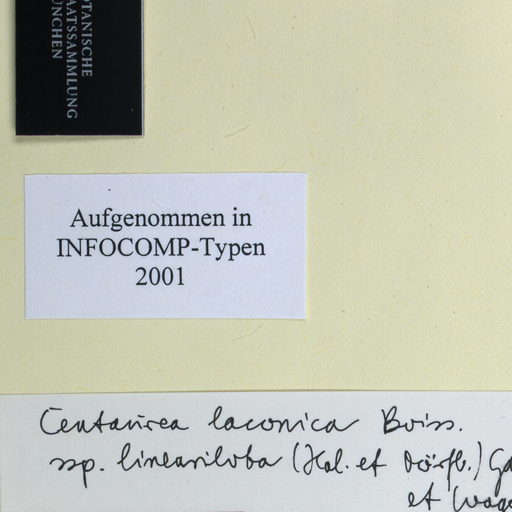 OTANISCHE
AATSSAMMLUNG
ÜNCHEN
Aufgenommen in
INFOCOMP-Typen
2001
Centaurea laconica Boiss.
ssp. lineariloba (Hal. et Dörfl.) Ga
et Wage